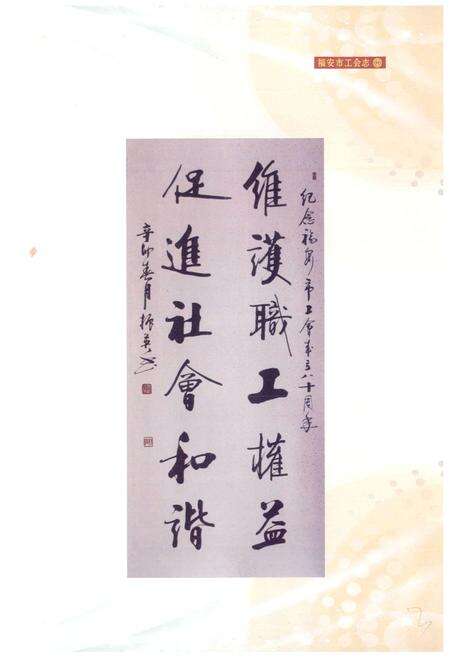 福安市工会志
纪念福安市工会成立八十周年
维護職工權益
促進社會和谐
辛卯春月振英书